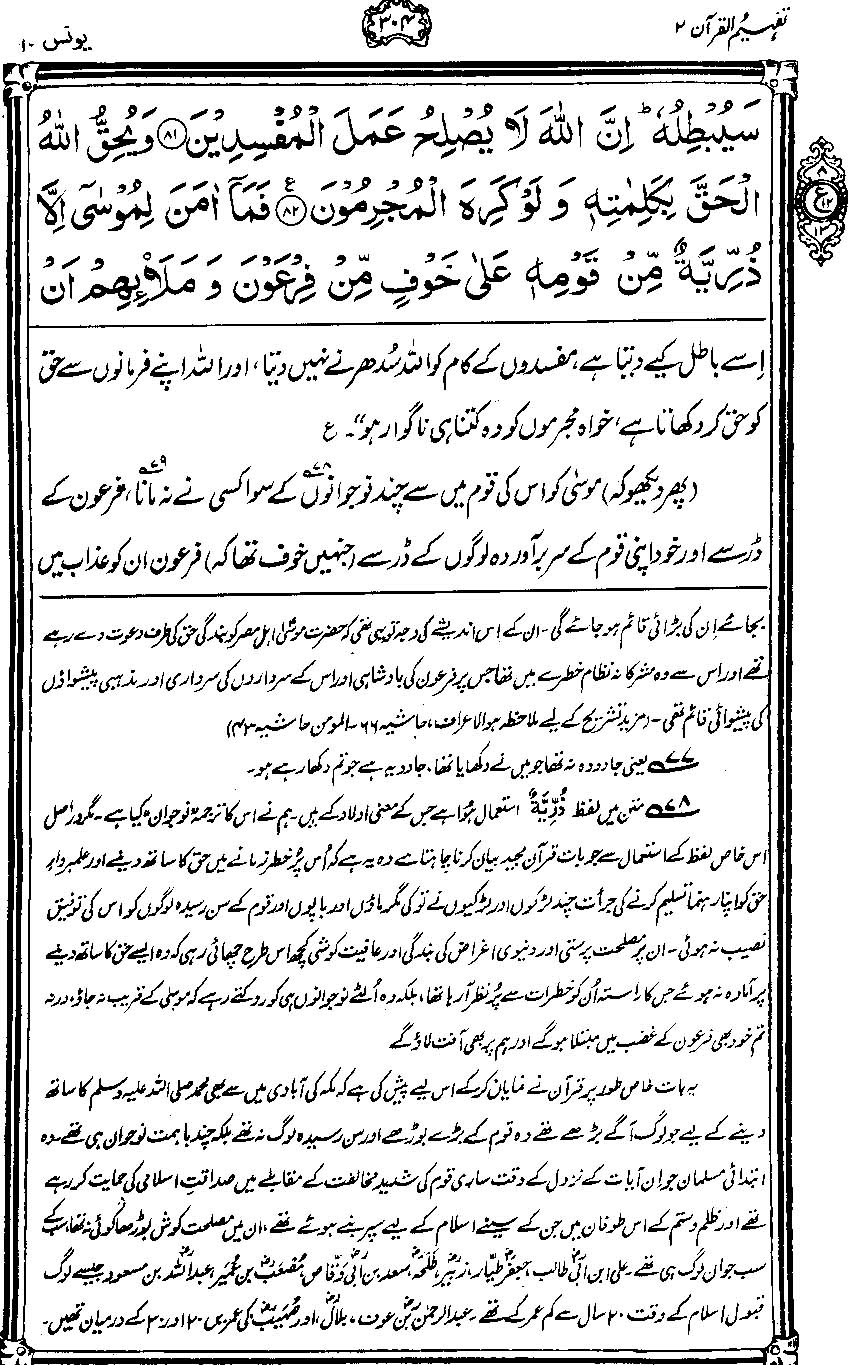 تفہیم القرآن ۲
۳۰۴
یونس ۱۰
سَيُبْطِلُهٗ ؕ اِنَّ اللّٰهَ لَا يُصْلِحُ عَمَلَ الْمُفْسِدِيْنَ ۝۸۱ وَيُحِقُّ اللّٰهُ
الْحَقَّ بِكَلِمٰتِهٖ وَ لَوْ كَرِهَ الْمُجْرِمُوْنَ ۝۸۲ ع فَمَاۤ اٰمَنَ لِمُوْسٰۤى اِلَّا
ذُرِّيَّةٌ مِّنْ قَوْمِهٖ عَلٰى خَوْفٍ مِّنْ فِرْعَوْنَ وَ مَلَا۟ئِهِمْ اَنْ
۸
ع ۱۲
۱۳
اِسے باطل کیے دیتا ہے، مفسدوں کے کام کو اللہ سُدھرنے نہیں دیتا، اور اللہ اپنے فرمانوں سے حق
کو حق کر دکھاتا ہے، خواہ مجرموں کو وہ کتنا ہی ناگوار ہو“۔ ع
(پھر دیکھو کہ) موسیٰ کو اس کی قوم میں سے چند نوجوانوں ۷۸ کے سوا کسی نے نہ مانا ۷۹، فرعون کے
ڈر سے اور خود اپنی قوم کے سربرآوردہ لوگوں کے ڈر سے (جنہیں خوف تھا کہ) فرعون ان کو عذاب میں
بجائے اِن کی بڑائی قائم ہو جائے گی۔ ان کے اِس اندیشے کی وجہ تو یہی تھی کہ حضرت موسیٰ اہل مصر کو بندگی حق کی طرف دعوت دے رہے
تھے اور اس سے وہ مشرکانہ نظام خطرے میں تھا جس پر فرعون کی بادشاہی اور اس کے سرداروں کی سرداری اور مذہبی پیشواؤں
کی پیشوائی قائم تھی۔ (مزید تشریح کے لیے ملاحظہ ہو الاعراف، حاشیہ ۶۶۔ المومن حاشیہ ۴۳)
۷۷ یعنی جادو وہ نہ تھا جو میں نے دکھایا تھا، جادو یہ ہے جو تم دکھا رہے ہو۔
۷۸ متن میں لفظ ذُرِّيَّةٌ استعمال ہوا ہے جس کے معنی اولاد کے ہیں۔ ہم نے اس کا ترجمہ ”نوجوان“ کیا ہے۔ مگر دراصل
اس خاص لفظ کے استعمال سے جو بات قرآن مجید بیان کرنا چاہتا ہے وہ یہ ہے کہ اُس پُر خطر زمانے میں حق کا ساتھ دینے اور علمبردارِ
حق کو اپنا رہنما تسلیم کرنے کی جرأت چند لڑکوں اور لڑکیوں نے تو کی مگر ماؤں اور باپوں اور قوم کے سن رسیدہ لوگوں کو اس کی توفیق
نصیب نہ ہوئی۔ ان پر مصلحت پرستی اور دنیوی اغراض کی بندگی اور عافیت کوشی کچھ اس طرح چھائی رہی کہ وہ ایسے حق کا ساتھ دینے
پر آمادہ نہ ہوئے جس کا راستہ اُن کو خطرات سے پُر نظر آ رہا تھا، بلکہ وہ اُلٹے نوجوانوں ہی کو روکتے رہے کہ موسیٰ کے قریب نہ جاؤ، ورنہ
تم خود بھی فرعون کے غضب میں مبتلا ہو گے اور ہم پر بھی آفت لاؤ گے
یہ بات خاص طور پر قرآن نے نمایاں کر کے اس لیے پیش کی ہے کہ مکہ کی آبادی میں سے بھی محمد صلی اللہ علیہ وسلم کا ساتھ
دینے کے لیے جو لوگ آگے بڑھے تھے وہ قوم کے بڑے بوڑھے اور سن رسیدہ لوگ نہ تھے بلکہ چند باہمت نوجوان ہی تھے۔ وہ
ابتدائی مسلمان جو اِن آیات کے نزول کے وقت ساری قوم کی شدید مخالفت کے مقابلے میں صداقتِ اسلامی کی حمایت کر رہے
تھے اور ظلم و ستم کے اس طوفان میں جن کے سینے اسلام کے لیے سپر بنے ہوئے تھے، ان میں مصلحت کوش بوڑھا کوئی نہ تھا، سب کے
سب جوان لوگ ہی تھے۔ علی ابن ابی طالبؓ، جعفرؓ طیار، زبیرؓ، طلحہؓ، سعدؓ بن ابی وقاص، مُصعَبؓ بن عُمَیر، عبداللہؓ بن مسعود جیسے لوگ
قبول اسلام کے وقت ۲۰ سال سے کم عمر کے تھے۔ عبدالرحمٰنؓ بن عوف، بلالؓ، اور صُہَیبؓ کی عمریں ۲۰ اور ۳۰ کے درمیان تھیں۔